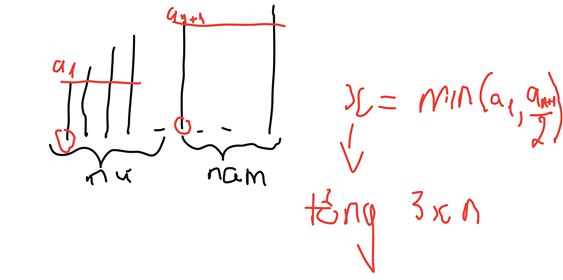 a₁
aₙ₊₁
nữ
nam
x = min(a₁, aₙ₊₁/2)
tổng 3xn